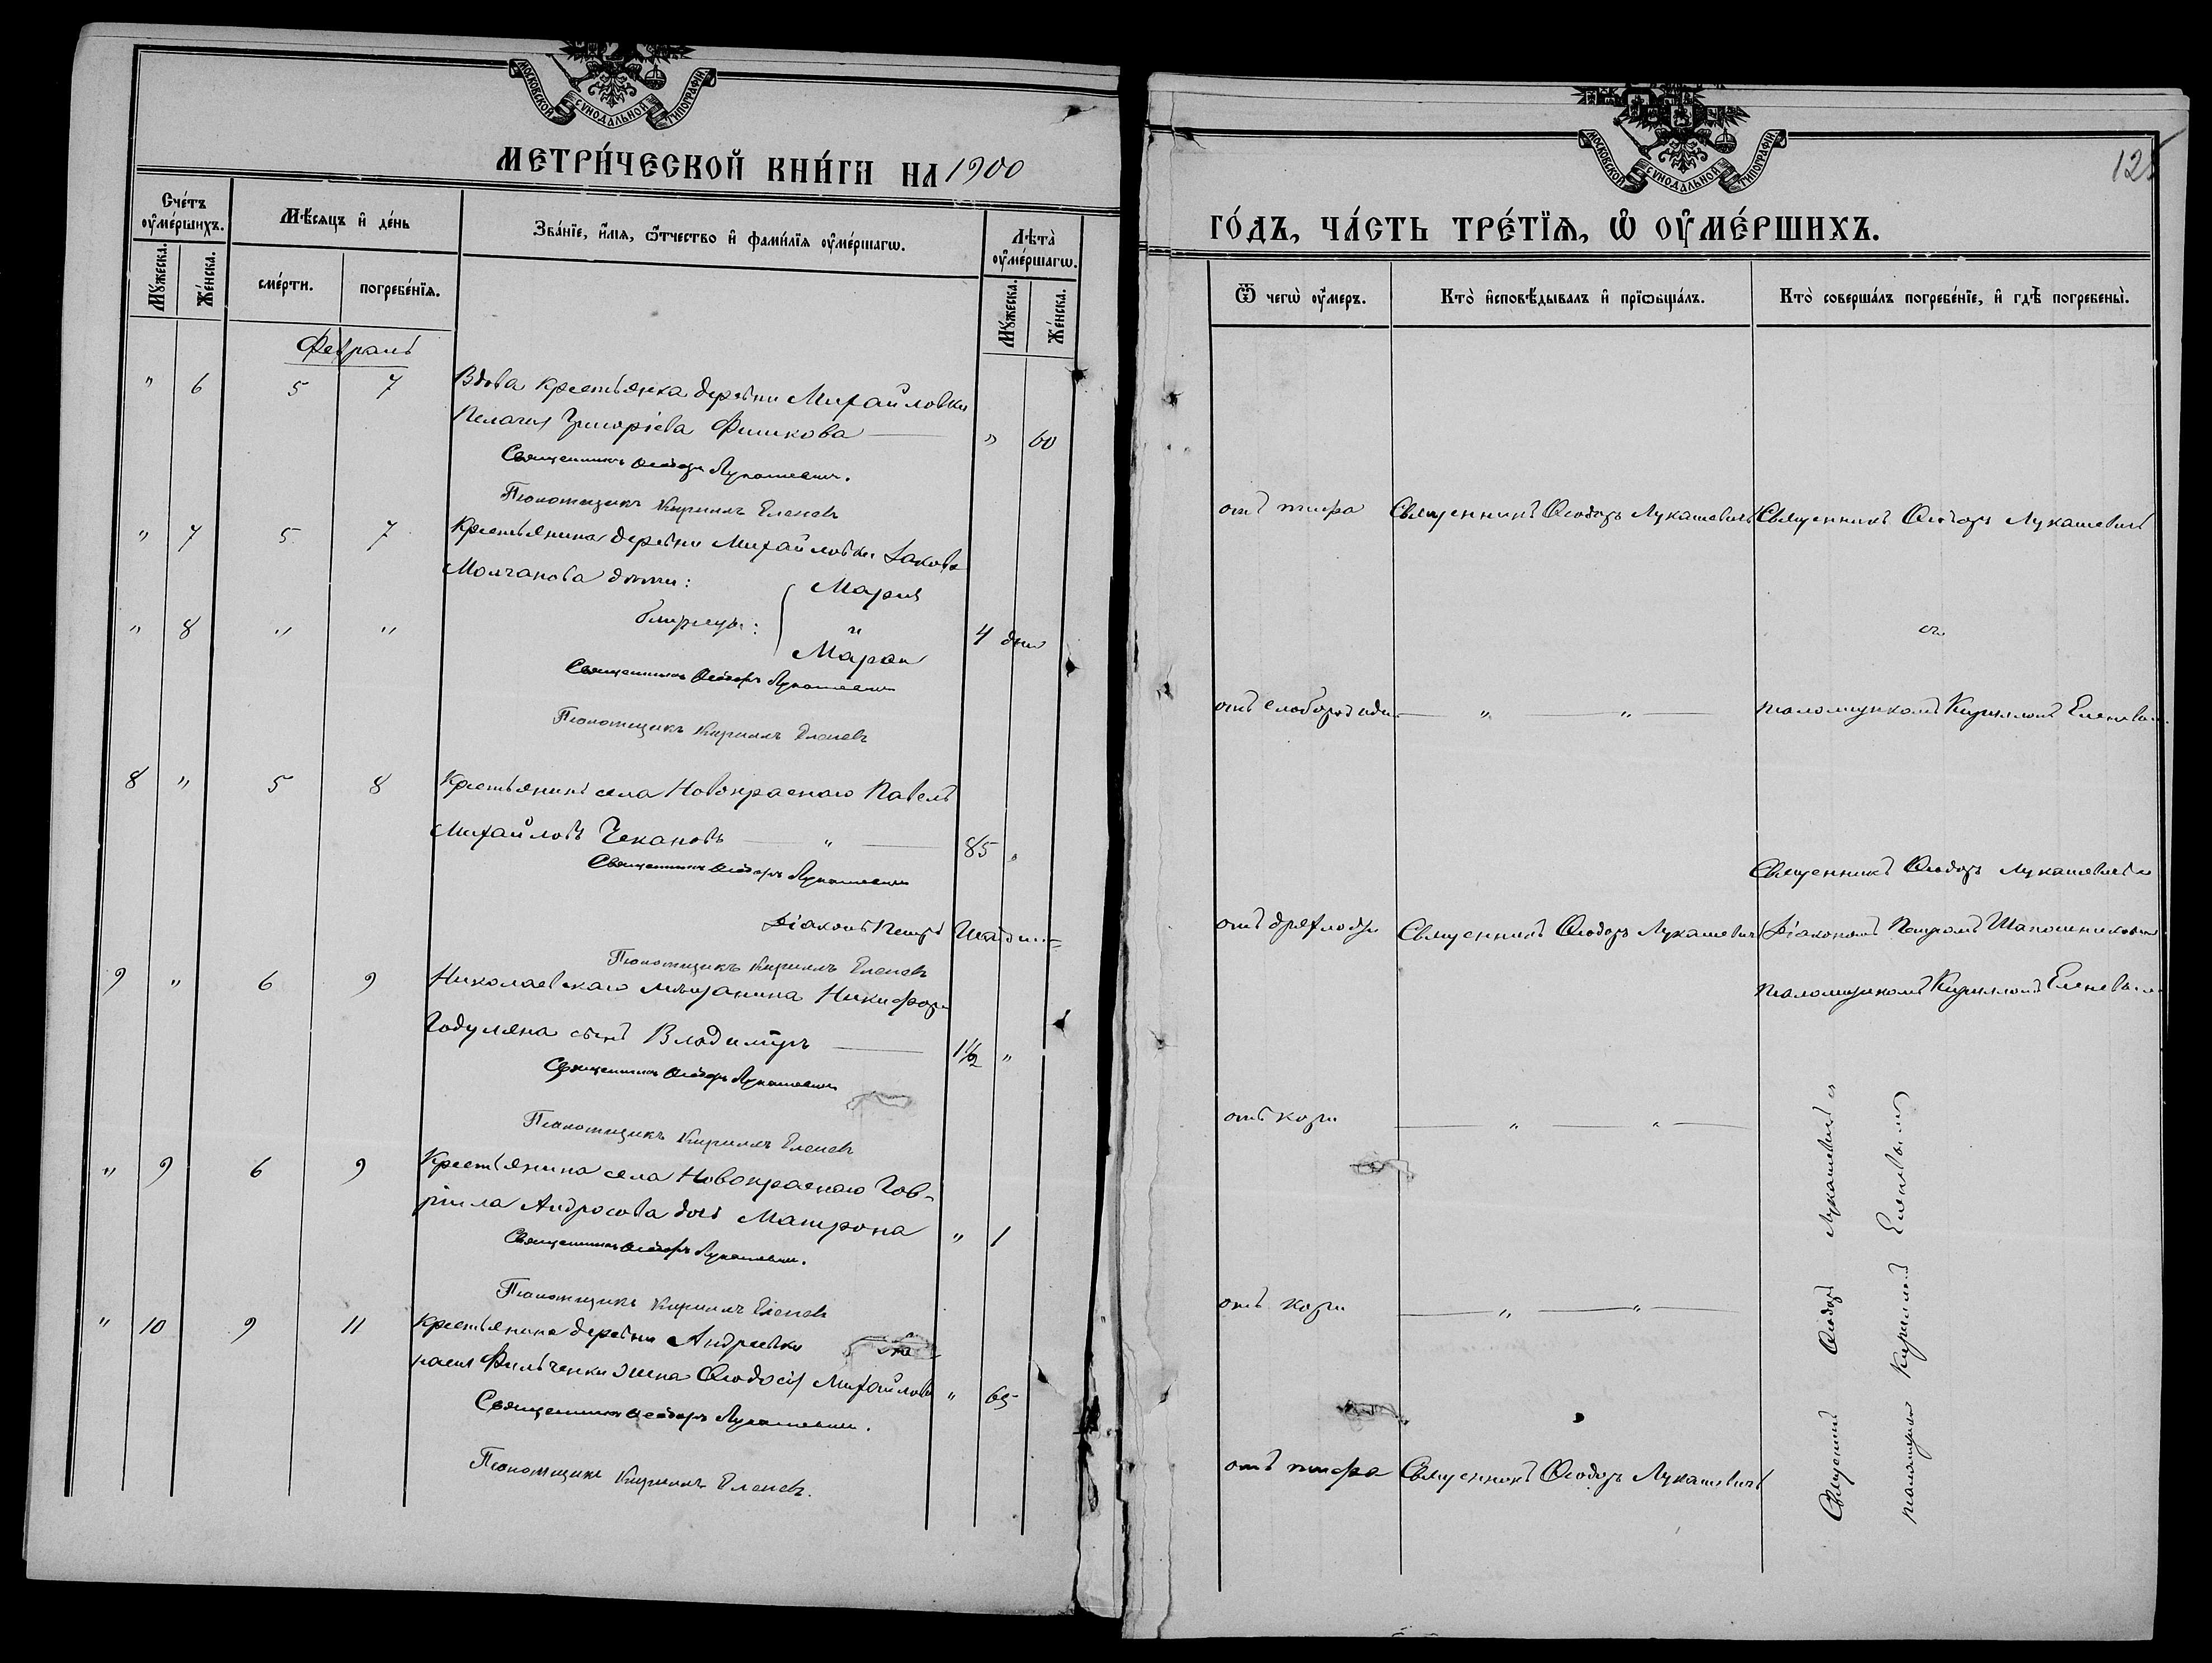 МОСКОВСКОЙ СУНОДАЛЬНОЙ ТИПОГРАФІИ
МЕТРИ́ЧЕСКОЙ КНИ́ГИ НА 1900
Сче́тъ оу҆ме́ршихъ.
Мѣ́сяцъ и҆ де́нь
Зва́нїе, и҆́мѧ, ѻ҆́тчество и҆ фами́лїѧ оу҆ме́ршагѡ.
Лѣ́та оу҆ме́ршагѡ.
Мꙋ́жеска.
Же́нска.
сме́рти.
погребе́нїѧ.
Мꙋ́жеска.
Же́нска.
Февраль
" 6 5 7 Вдова крестьянка деревни Михайловки
Пелагия Григоріева Фишкова — " 60
Священникъ Ѳеодоръ Лукашевичъ.
Псаломщикъ Кириллъ Еленевъ
" 7 5 7 Крестьянина деревни Михайловки Іакова
Молчанова дѣти:
Марія
" 8 " " близнецы: и 4 дни
Марѳа
Священникъ Ѳеодоръ Лукашевичъ
Псаломщикъ Кириллъ Еленевъ
8 " 5 8 Крестьянинъ села Новокраснаго Павелъ
Михайловъ Чекановъ — " — 85 "
Священникъ Ѳеодоръ Лукашевичъ
Діаконъ Петръ
Псаломщикъ Кириллъ Еленевъ
9 " 6 9 Николаевскаго мѣщанина Никифора
Годуляна сынъ Владиміръ — 1½ "
Священникъ Ѳеодоръ Лукашевичъ
Псаломщикъ Кириллъ Еленевъ
" 9 6 9 Крестьянина села Новокраснаго Гав-
ріила Андросова дочь Матрона " 1
Священникъ Ѳеодоръ Лукашевичъ.
Псаломщикъ Кириллъ Еленевъ
" 10 9 11 Крестьянина деревни Андреевки
Фильченки жена Ѳеодосія Михайлова " 65
Священникъ Ѳеодоръ Лукашевичъ.
Псаломщикъ Кириллъ Еленевъ.
МОСКОВСКОЙ СУНОДАЛЬНОЙ ТИПОГРАФІИ
ГО́ДЪ, ЧА́СТЬ ТРЕ́ТЇѦ, Ѡ҆ ОУ҆МЕ́РШИХЪ.
Ѿ чегѡ̀ оу҆́меръ.
Кто̀ и҆сповѣ́дывалъ и҆ прїѡбща́лъ.
Кто̀ соверша́лъ погребе́нїе, и҆ гдѣ̀ погребены̀.
отъ тифа Священникъ Ѳеодоръ Лукашевичъ Священникъ Ѳеодоръ Лукашевичъ
съ
отъ слаборожден. — " — " — псаломщикомъ Кирилломъ Еленевымъ.
Священникъ Ѳеодоръ Лукашевичъ съ
отъ дряхлости Священникъ Ѳеодоръ Лукашевичъ Діакономъ Петромъ Шапошниковымъ
псаломщикомъ Кирилломъ Еленевымъ
отъ кори — " — " —
отъ кори — " — " —
отъ тифа Священникъ Ѳеодоръ Лукашевичъ
Священникъ Ѳеодоръ Лукашевичъ съ
псаломщикомъ Кирилломъ Еленевымъ